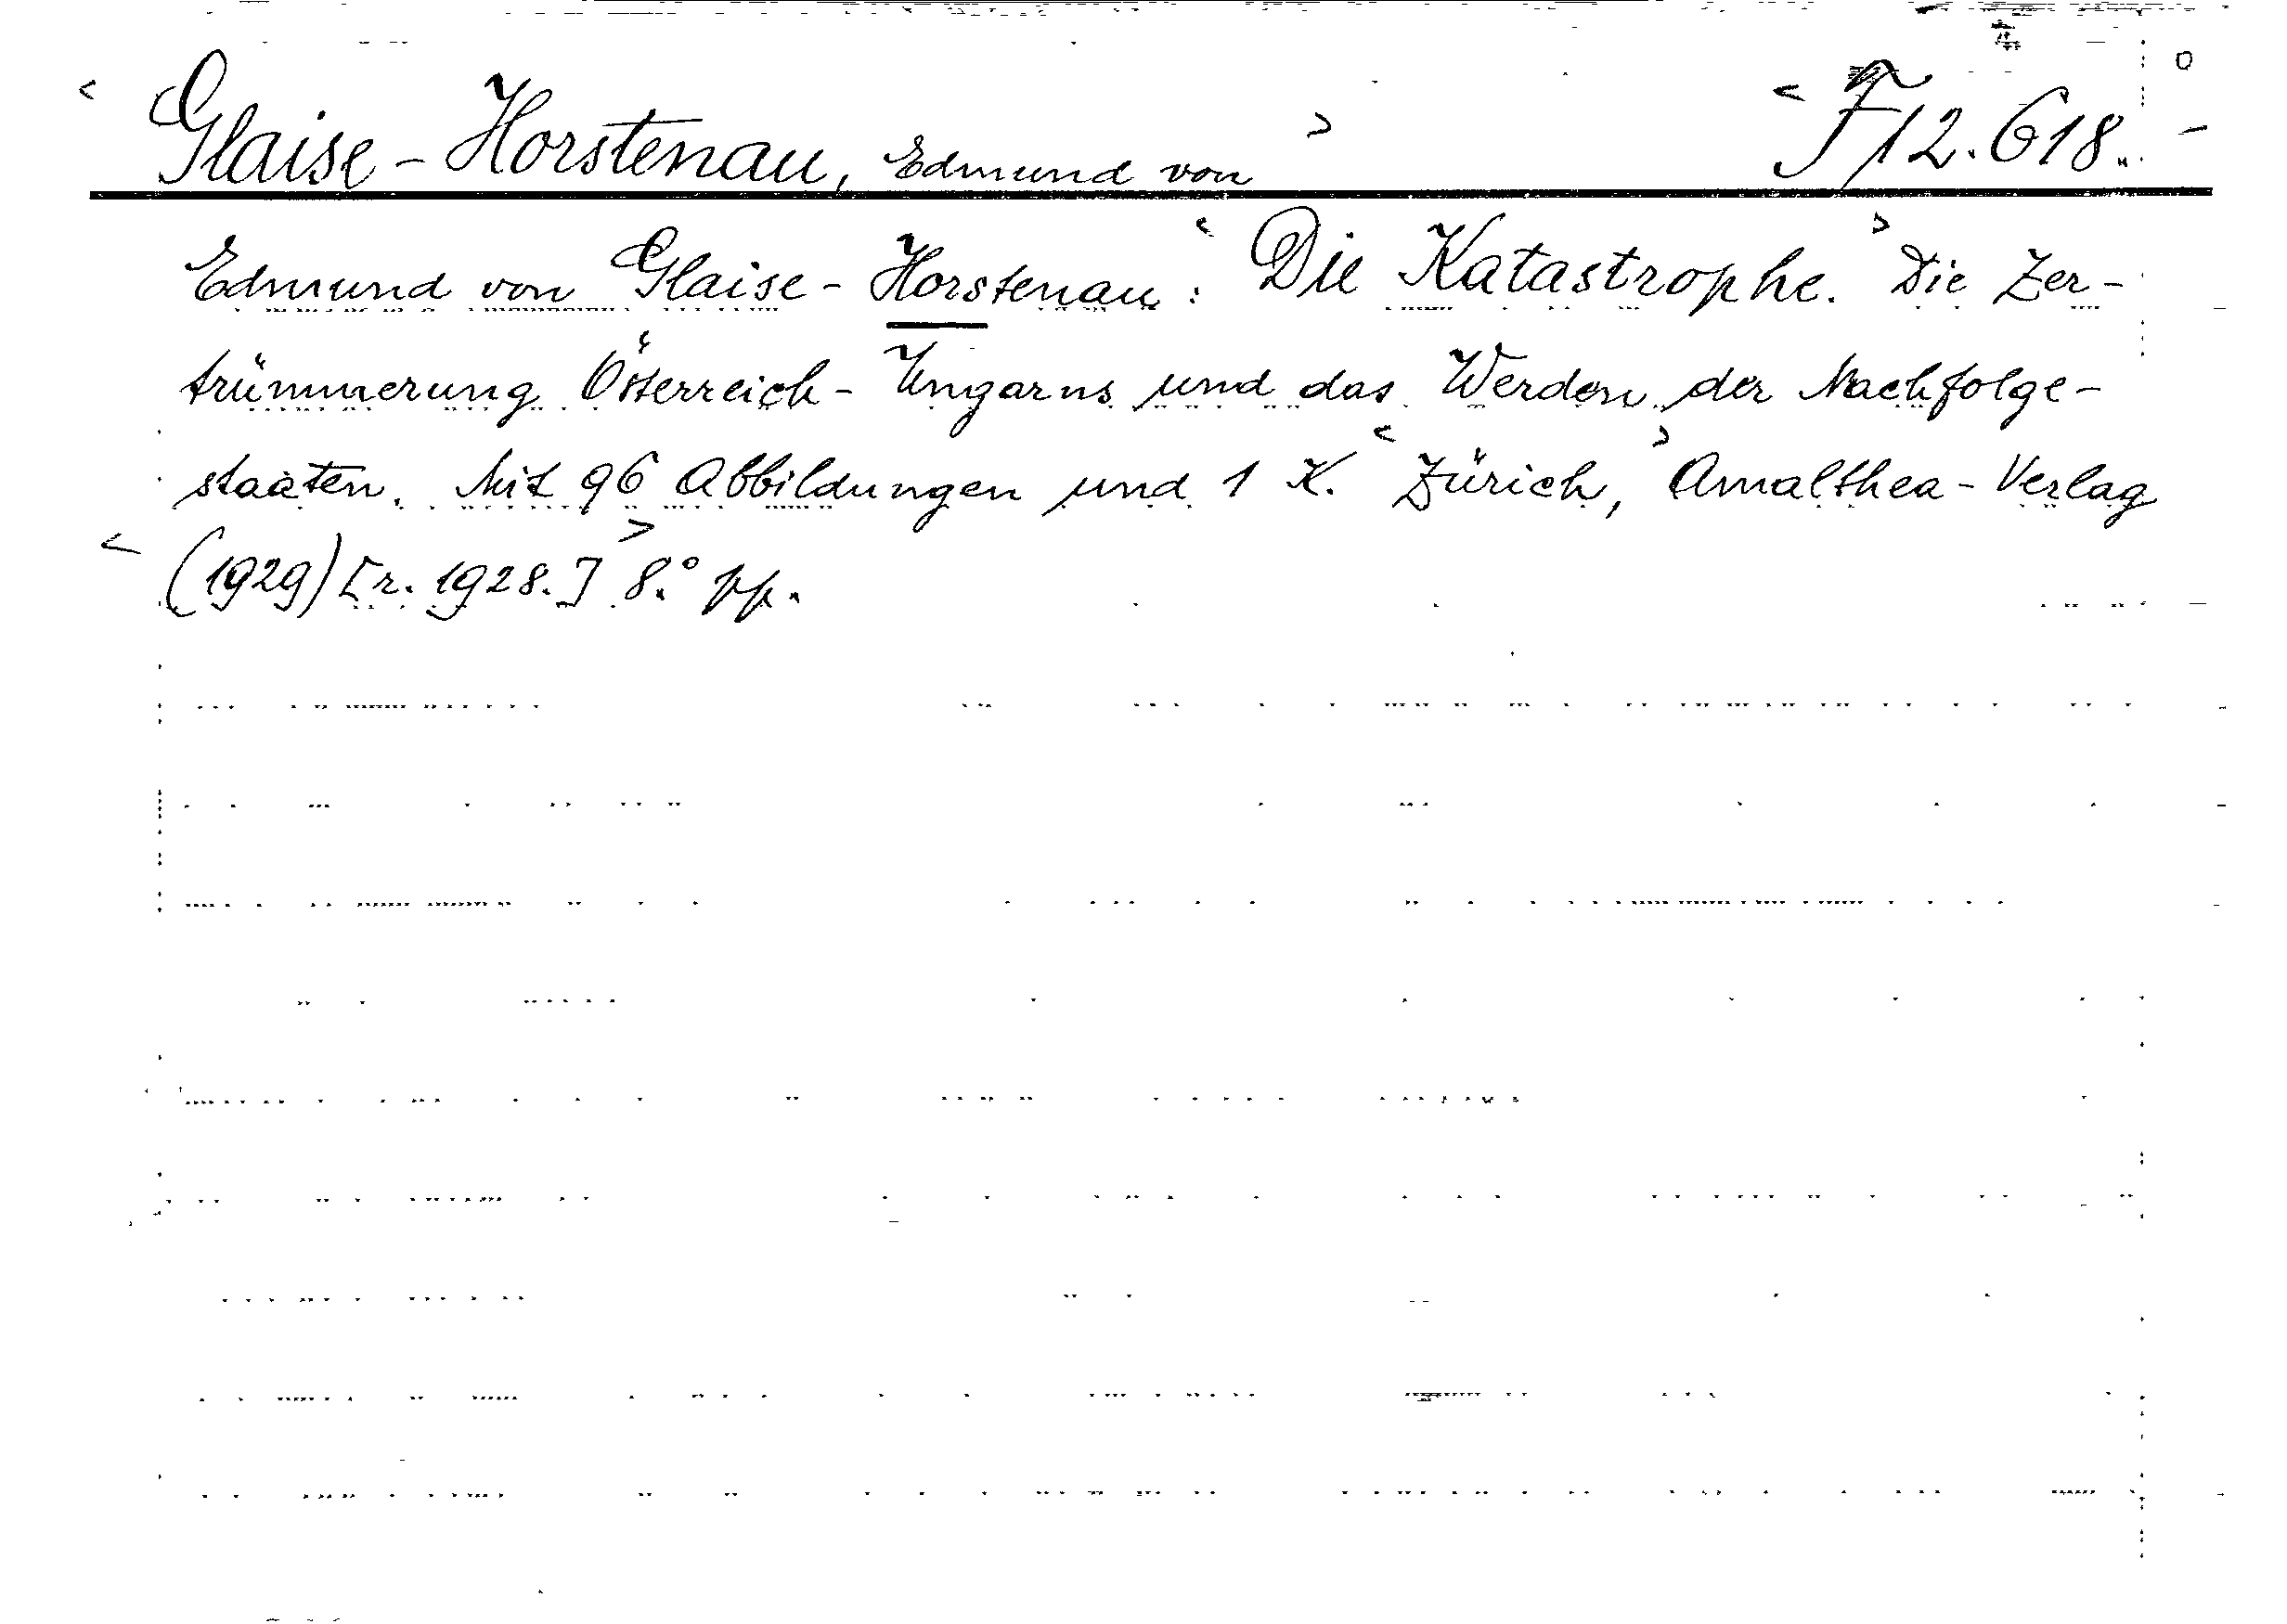 < Glaise-Horstenau, Edmund von > < F 12.618.-
Edmund von Glaise-Horstenau: < Die Katastrophe. > Die Zer-
trümmerung Österreich-Ungarns und das Werden der Nachfolge-
staaten. Mit 96 Abbildungen und 1 K. < Zürich, > Amalthea-Verlag
< (1929) [r. 1928.] > 8.° pp.